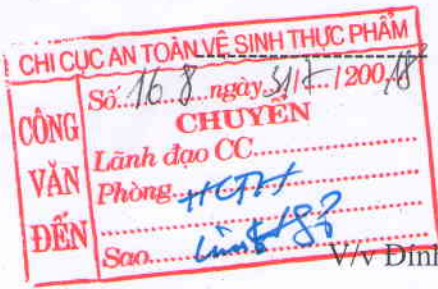 CHI CỤC AN TOÀN VỆ SINH THỰC PHẨM
CÔNG VĂN ĐẾN
Số 168 ngày 31/ /200
CHUYỂN
Lãnh đạo CC
Phòng HCTH
Sao
V/v Đính